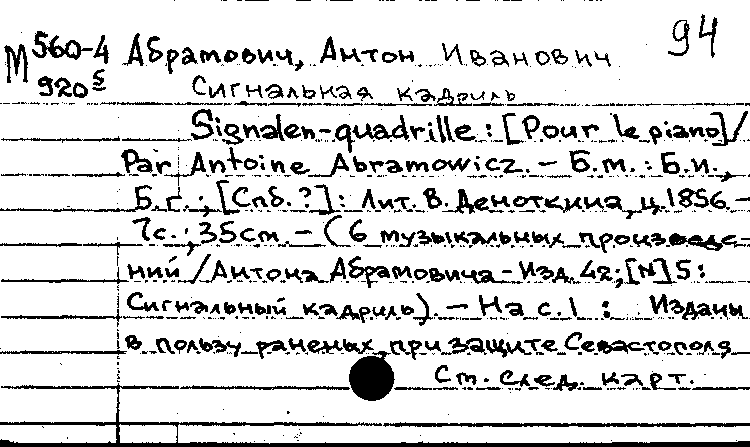 94
М 560-4 Абрамович, Антон Иванович
920⁵ Сигнальная кадриль
Signalen-quadrille : [Pour le piano] /
Par Antoine Abramowicz. – Б.м. : Б.и.,
Б.г. ; [Спб. ?] : Лит. В. Деноткина, ц. 1856. –
7с. ; 35см. – (6 музыкальных произведе-
ний / Антона Абрамовича - Изд. 42 ; [N] 5 :
Сигнальный кадриль). – На с. 1 : Изданы
в пользу раненых при защите Севастополя
См. след. карт.